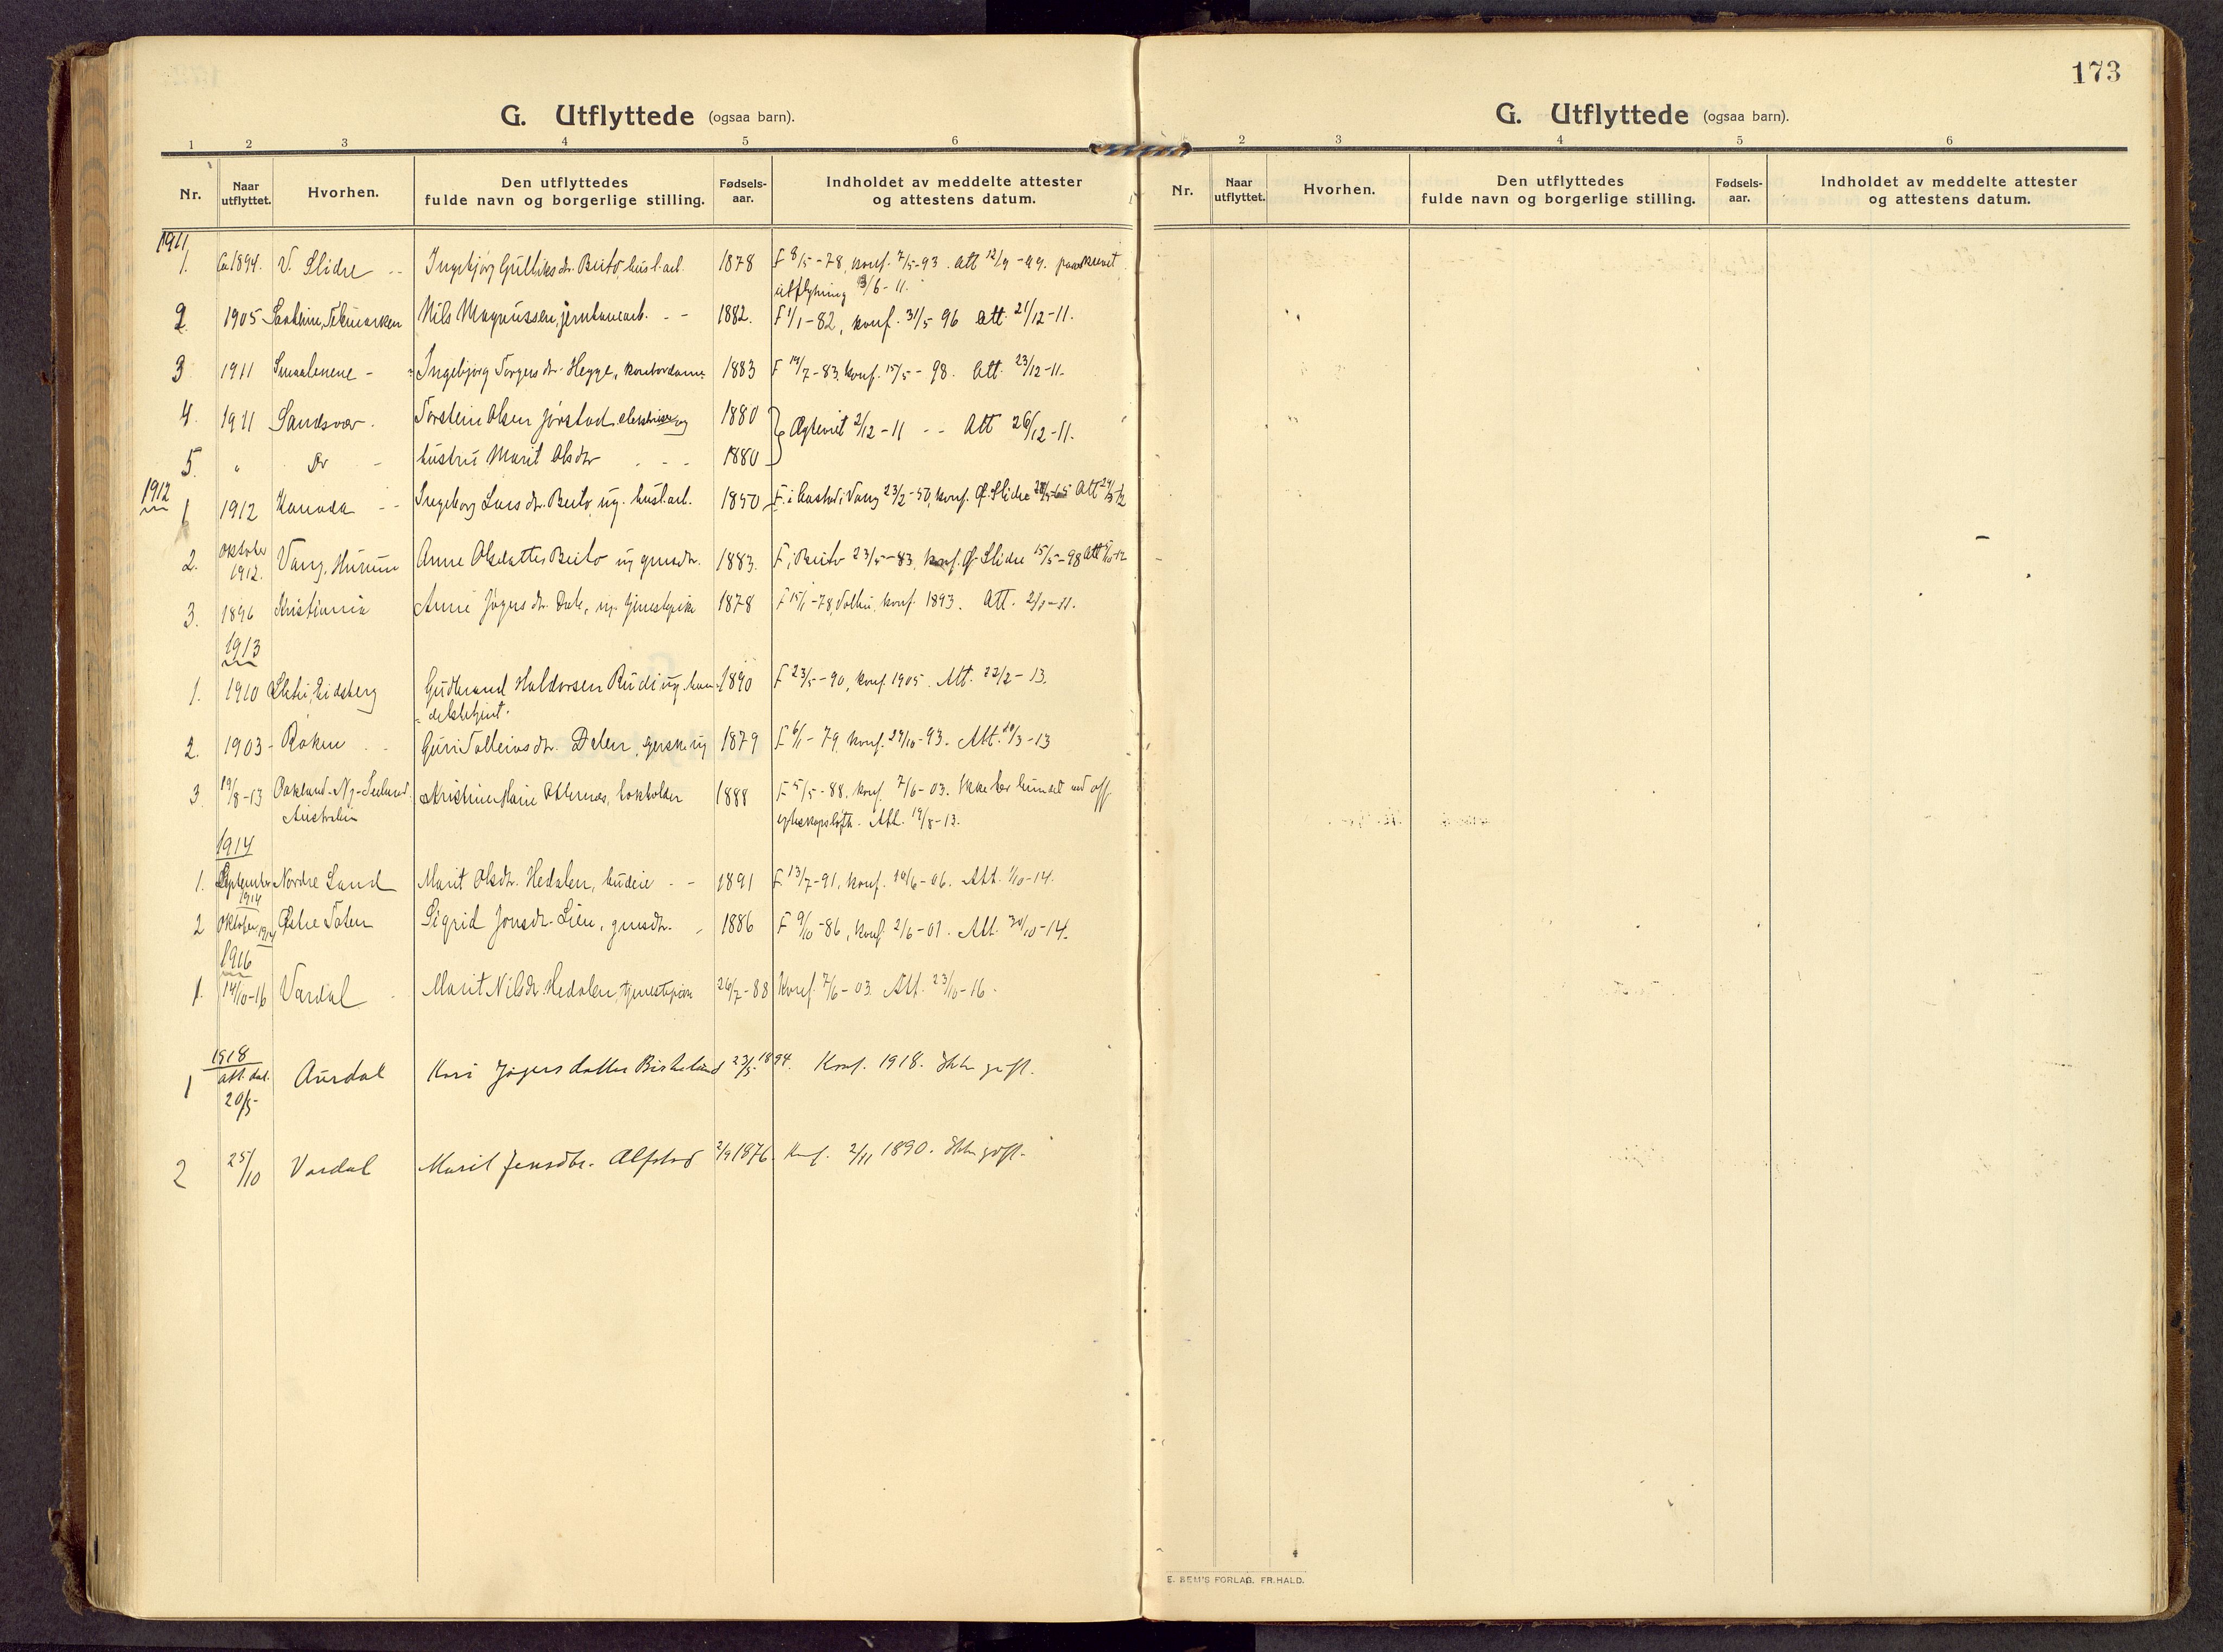 173
G. Utflyttede (ogsaa barn).
1 2 3 4 5 6
Nr.
Naar utflyttet.
Hvorhen.
Den utflyttedes
fulde navn og borgerlige stilling.
Fødsels-
aar.
Indholdet av meddelte attester
og attestens datum.
1911
1. 1894. V. Slidre Ingebjørg Gulliksdr. Beito, 1878 F 8/5-78, konf. 7/5-93. att 12/9 -99.
utflytning 13/6-11.
2 1905 Nils Magnussen, 1882. F 1/1-82, konf. 31/5 96 att. 21/12-11.
3 1911 Smaalenene - Ingebjørg Torgersdr. Hegge, kontordame 1883 F 19/7-83, konf. 15/5-98. Att. 23/12-11.
4. 1911 Sandsvær. Torstein Olsen Jørstad 1880
Ægteviet 2/12-11 -- Att 26/12-11.
5. " Do - hustru Marit Olsdtr 1880
1912
1 1912 Kanada -- Ingeborg Larsdr. Beito ug. 1850 F. i Vang 23/2-50, konf. Ø. Slidre
2. oktober
1912. Vang, Hurum Anne Olsdatter Beito ug grmdr. 1883. F. i Beito 23/5-83. konf. Ø. Slidre 15/5-98
3. 1896 Kristiania Anne 1878 F 15/1-78, konf. 1893. Att. 2/1-11.
1913
1. 1910 Eidsberg Gudbrand Haldorsen Rudi ug. han- 1890 F 23/5-90, konf. 1905. Att. 22/2-13.
delsbetjent.
2. 1903- Røken Guri Tolleivsdr. Dalen, ug 1879 F. 6/1-79, konf. 29/10-93. Att. 19/3-13
3. 19/8-13 Ny-Seeland. Kristine Marie bokholder 1888 F 5/5-88. konf. 7/6-03. Ikke
Australia Att. 19/8-13.
1914
1. September Nordre Land Marit Olsdr. Hedalen, budeie -- 1891 F. 13/7-91, konf. 10/6-06. Att. 1/10-14.
1914
2 Oktober 1914 Østre Toten Sigrid Jonsdr. Lien, grmdr. 1886 F 9/10-86, konf. 2/6-01. Att. 30/10-14.
1916
1. 14/10-16 Vardal Marit Nilsdr. Hedalen, tjenestepike 26/7-88 Konf. 7/6-03. Att. 23/10-16.
1918
1 att. dat. Aurdal Kari datter 23/5 1894. Konf. 1918. Ikke gift.
20/5-
2 25/10 Vardal Marit Jensdtr. Alfstad 2/9 1876. Konf. 2/11 1890. Ikke gift.
G. Utflyttede (ogsaa barn).
2 3 4 5 6
Nr.
Naar utflyttet.
Hvorhen.
Den utflyttedes
fulde navn og borgerlige stilling.
Fødsels-
aar.
Indholdet av meddelte attester
og attestens datum.
E. SEM'S FORLAG. FR.HALD.